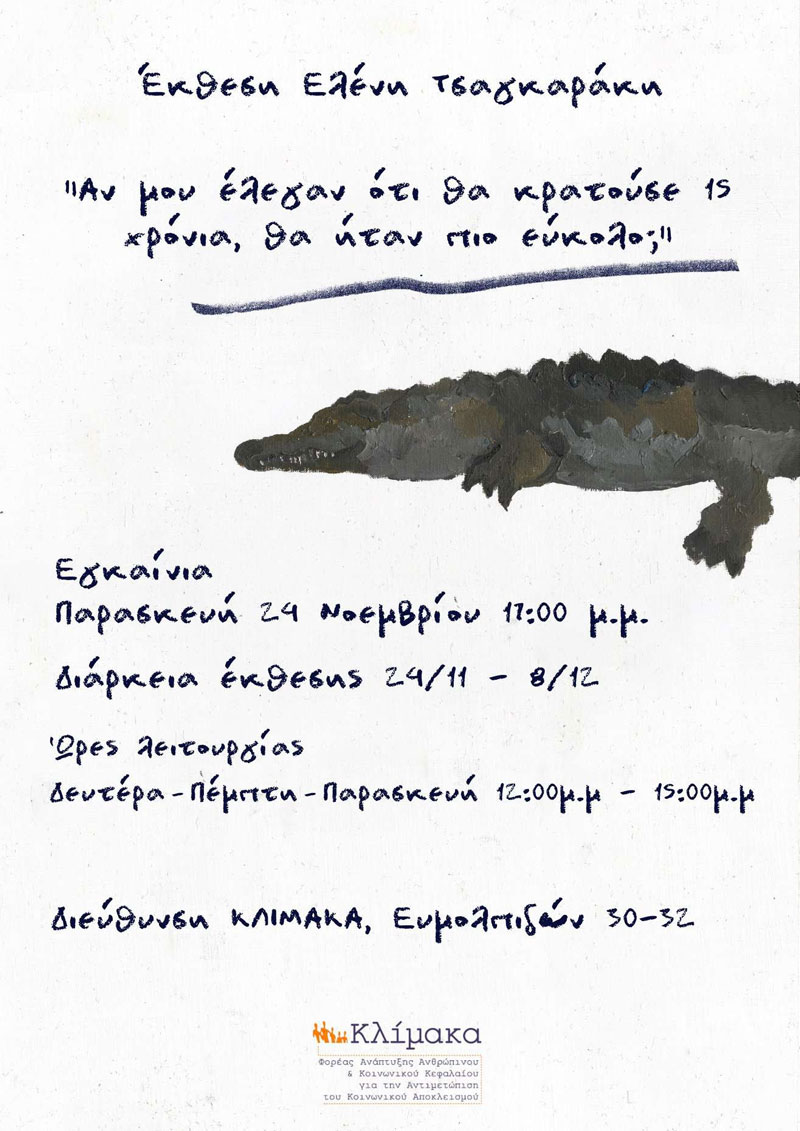 Έκθεση Ελένη Τσαγκαράκη
"Αν μου έλεγαν ότι θα κρατούσε 15
χρόνια, θα ήταν πιο εύκολο;"
Εγκαίνια
Παρασκευή 24 Νοεμβρίου 17:00 μ.μ.
Διάρκεια έκθεσης 24/11 - 8/12
Ώρες λειτουργίας
Δευτέρα - Πέμπτη - Παρασκευή 12:00μ.μ - 15:00μ.μ
Διεύθυνση ΚΛΙΜΑΚΑ, Ευμολπιδών 30-32
Κλίμακα
Φορέας Ανάπτυξης Ανθρώπινου
& Κοινωνικού Κεφαλαίου
για την Αντιμετώπιση
του Κοινωνικού Αποκλεισμού